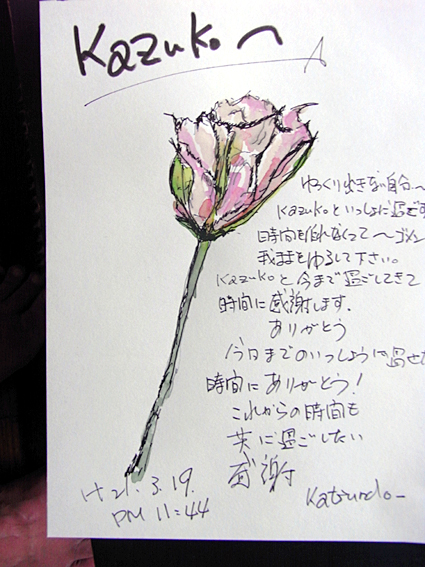 Kazukoへ
ゆっくり出きない自分へ
Kazukoといっしょに過ごす
時間を作れなくって〜ゴメン
我ままをゆるして下さい。
Kazukoと今まで過ごしてきて
時間に感謝します.
ありがとう
今日までのいっしょうに過せた
時間にありがとう!
これからの時間も
共に過ごしたい
感謝
H21.3.19.
PM 11:44